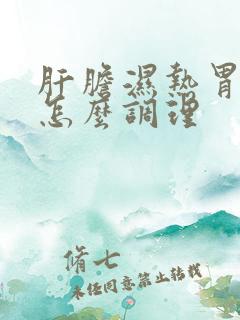 肝膽濕熱胃
怎麼調理
脩七
未任同意禁止轉載